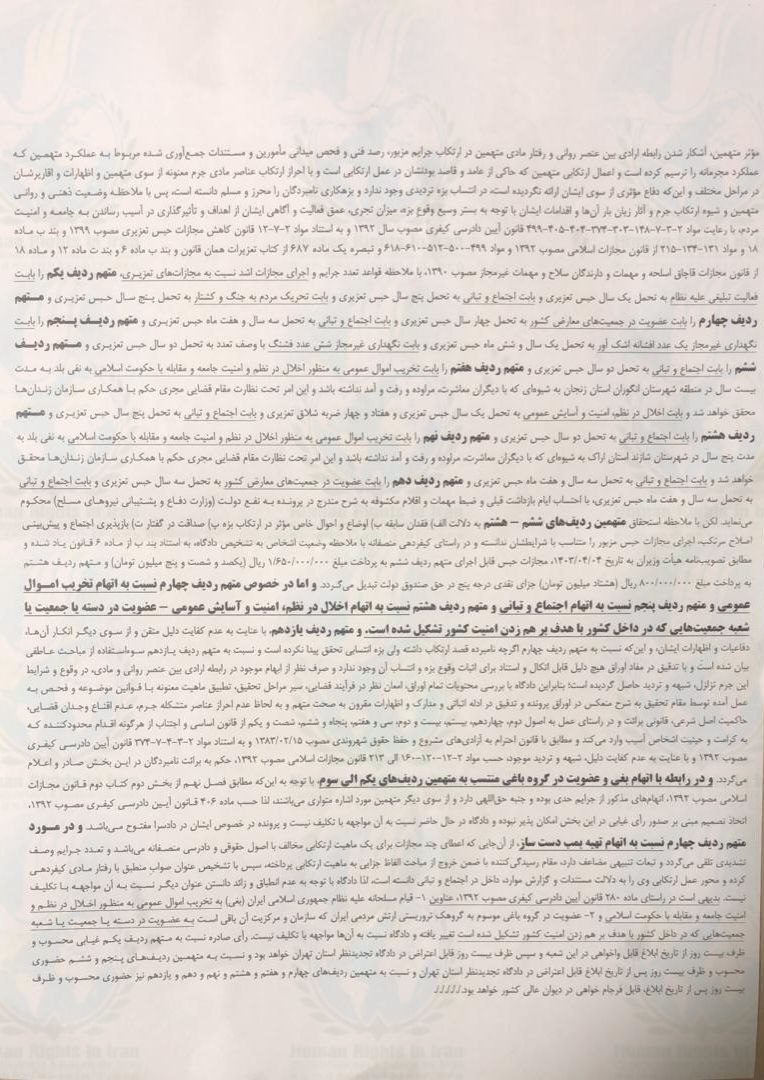 مؤثر متهمین، آشکار شدن رابطه ارادی بین عنصر روانی و رفتار مادی متهمین در ارتکاب جرایم مزبور، رصد فنی و فحص میدانی مأمورین و مستندات جمع‌آوری شده مربوط به عملکرد متهمین که
عملکرد مجرمانه را ترسیم کرده است و اعمال ارتکابی متهمین که حاکی از عامد و قاصد بودنشان در عمل ارتکابی است و با احراز ارتکاب عناصر مادی جرم معنونه از سوی متهمین و اظهارات و اقاریرشان
در مراحل مختلف و این‌که دفاع مؤثری از سوی ایشان ارائه نگردیده است، در انتساب بزه تردیدی وجود ندارد و بزهکاری نامبردگان را محرز و مسلم دانسته است، پس با ملاحظه وضعیت ذهنی و روانی
متهمین و شیوه ارتکاب جرم و آثار زیان بار آن‌ها و اقدامات ایشان با توجه به بستر وسیع وقوع بزه، میزان تجری، عمق فعالیت و آگاهی ایشان از اهداف و تأثیرگذاری در آسیب رساندن به جامعه و امنیت
مردم، با رعایت مواد ۲-۳-۷-۱۴۸-۳۰۳-۳۷۴-۴۰۴-۴۰۵-۴۹۹ قانون آیین دادرسی کیفری مصوب سال ۱۳۹۲ و به استناد مواد ۲-۷-۱۲ قانون کاهش مجازات حبس تعزیری مصوب ۱۳۹۹ و بند ب ماده
۱۸ و مواد ۱۳۱-۱۳۴-۲۱۵ از قانون مجازات اسلامی مصوب ۱۳۹۲ و مواد ۴۹۹-۵۰۰-۵۱۲-۶۱۰-۶۱۸ و تبصره یک ماده ۶۸۷ از کتاب تعزیرات همان قانون و بند ب ماده ۶ و بند ت ماده ۱۲ و ماده ۱۸
از قانون مجازات قاچاق اسلحه و مهمات و دارندگان سلاح و مهمات غیرمجاز مصوب ۱۳۹۰، با ملاحظه قواعد تعدد جرایم و اجرای مجازات اشد نسبت به مجازات‌های تعزیری، متهم ردیف یکم را بابت
فعالیت تبلیغی علیه نظام به تحمل یک سال حبس تعزیری و بابت اجتماع و تبانی به تحمل پنج سال حبس تعزیری و بابت تحریک مردم به جنگ و کشتار به تحمل پنج سال حبس تعزیری و متهم
ردیف چهارم را بابت عضویت در جمعیت‌های معارض کشور به تحمل چهار سال حبس تعزیری و بابت اجتماع و تبانی به تحمل سه سال و هفت ماه حبس تعزیری و متهم ردیف پنجم را بابت
نگهداری غیرمجاز یک عدد افشانه اشک آور به تحمل یک سال و شش ماه حبس تعزیری و بابت نگهداری غیرمجاز شش عدد فشنگ با وصف تعدد به تحمل دو سال حبس تعزیری و متهم ردیف
ششم را بابت اجتماع و تبانی به تحمل دو سال حبس تعزیری و متهم ردیف هفتم را بابت تخریب اموال عمومی به منظور اخلال در نظم و امنیت جامعه و مقابله با حکومت اسلامی به نفی بلد به مدت
بیست سال در منطقه شهرستان انگوران استان زنجان به شیوه‌ای که با دیگران معاشرت، مراوده و رفت و آمد نداشته باشد و این امر تحت نظارت مقام قضایی مجری حکم با همکاری سازمان زندان‌ها
محقق خواهد شد و بابت اخلال در نظم، امنیت و آسایش عمومی به تحمل یک سال حبس تعزیری و هفتاد و چهار ضربه شلاق تعزیری و بابت اجتماع و تبانی به تحمل پنج سال حبس تعزیری و متهم
ردیف هشتم را بابت اجتماع و تبانی به تحمل دو سال حبس تعزیری و متهم ردیف نهم را بابت تخریب اموال عمومی به منظور اخلال در نظم و امنیت جامعه و مقابله با حکومت اسلامی به نفی بلد به
مدت پنج سال در شهرستان شازند استان اراک به شیوه‌ای که با دیگران معاشرت، مراوده و رفت و آمد نداشته باشد و این امر تحت نظارت مقام قضایی مجری حکم با همکاری سازمان زندان‌ها محقق
خواهد شد و بابت اجتماع و تبانی به تحمل سه سال و هفت ماه حبس تعزیری و متهم ردیف دهم را بابت عضویت در جمعیت‌های معارض کشور به تحمل سه سال حبس تعزیری و بابت اجتماع و تبانی
به تحمل سه سال و هفت ماه حبس تعزیری، با احتساب ایام بازداشت قبلی و ضبط مهمات و اقلام مکشوفه به شرح مندرج در پرونده به نفع دولت (وزارت دفاع و پشتیبانی نیروهای مسلح) محکوم
می‌نماید. لکن با ملاحظه استحقاق متهمین ردیف‌های ششم – هشتم به دلالت الف) فقدان سابقه ب) اوضاع و احوال خاص مؤثر در ارتکاب بزه پ) صداقت در گفتار ت) بازپذیری اجتماع و پیش‌بینی
اصلاح مرتکب، اجرای مجازات حبس مزبور را متناسب با شرایطشان ندانسته و در راستای کیفردهی منصفانه با ملاحظه وضعیت اشخاص به تشخیص دادگاه، به استناد بند ب از ماده ۶ قانون یاد شده و
مطابق تصویب‌نامه هیأت وزیران به تاریخ ۱۴۰۳/۰۴/۰۴، مجازات حبس قابل اجرای متهم ردیف ششم به پرداخت مبلغ ۱/۶۵۰/۰۰۰/۰۰۰ ریال (یکصد و شصت و پنج میلیون تومان) و متهم ردیف هشتم
به پرداخت مبلغ ۸۰۰/۰۰۰/۰۰۰ ریال (هشتاد میلیون تومان) جزای نقدی درجه پنج در حق صندوق دولت تبدیل می‌گردد. و اما در خصوص متهم ردیف چهارم نسبت به اتهام تخریب اموال
عمومی و متهم ردیف پنجم نسبت به اتهام اجتماع و تبانی و متهم ردیف هشتم نسبت به اتهام اخلال در نظم، امنیت و آسایش عمومی – عضویت در دسته یا جمعیت یا
شعبه جمعیت‌هایی که در داخل کشور با هدف بر هم زدن امنیت کشور تشکیل شده است. و متهم ردیف یازدهم، با عنایت به عدم کفایت دلیل متقن و از سوی دیگر انکار آن‌ها،
دفاعیات و اظهارات ایشان، و این‌که نسبت به متهم ردیف چهارم اگرچه نامبرده قصد ارتکاب داشته ولی بزه انتسابی تحقق پیدا نکرده است و نسبت به متهم ردیف یازدهم سوءاستفاده از مباحث عاطفی
بیان شده است و با تدقیق در مفاد اوراق هیچ دلیل قابل اتکال و استناد برای اثبات وقوع بزه و انتساب آن وجود ندارد و صرف نظر از ابهام موجود در رابطه ارادی بین عنصر روانی و مادی، در وقوع و شرایط
این جرم تزلزل، شبهه و تردید حاصل گردیده است؛ بنابراین دادگاه با بررسی محتویات تمام اوراق، امعان نظر در فرآیند قضایی، سیر مراحل تحقیق، تطبیق ماهیت معنونه با قوانین موضوعه و فحص به
عمل آمده توسط مقام تحقیق به شرح منعکس در اوراق پرونده و تدقیق در ادله اثباتی و مدارک و اظهارات مقرون به صحت متهم و به لحاظ عدم احراز عناصر متشکله جرم، عدم اقناع وجدان قضایی،
حاکمیت اصل شرعی، قانونی برائت و در راستای عمل به اصول دوم، چهاردهم، بیستم، بیست و دوم، سی و هفتم، پنجاه و ششم، شصت و یکم از قانون اساسی و اجتناب از هرگونه اقدام محدودکننده که
به کرامت و حیثیت اشخاص آسیب وارد می‌کند و مطابق با قانون احترام به آزادی‌های مشروع و حفظ حقوق شهروندی مصوب ۱۳۸۳/۰۲/۱۵ و به استناد مواد ۲-۳-۴-۷-۳۷۴ قانون آیین دادرسی کیفری
مصوب ۱۳۹۲ و با عنایت به عدم کفایت دلیل، شبهه و تردید موجود، حسب مواد ۲-۱۲-۱۲۰-۱۶۰ الی ۲۱۳ قانون مجازات اسلامی مصوب ۱۳۹۲، حکم به برائت نامبردگان در این بخش صادر و اعلام
می‌گردد. و در رابطه با اتهام بغی و عضویت در گروه باغی منتسب به متهمین ردیف‌های یکم الی سوم، با توجه به این‌که مطابق فصل نهم از بخش دوم کتاب دوم قانون مجازات
اسلامی مصوب ۱۳۹۲، اتهام‌های مذکور از جرایم حدی بوده و جنبه حق‌اللهی دارد و از سوی دیگر متهمین مورد اشاره متواری می‌باشند، لذا حسب ماده ۴۰۶ قانون آیین دادرسی کیفری مصوب ۱۳۹۲،
اتخاذ تصمیم مبنی بر صدور رأی غیابی در این بخش امکان پذیر نبوده و دادگاه در حال حاضر نسبت به آن مواجهه با تکلیف نیست و پرونده در خصوص ایشان در دادسرا مفتوح می‌باشد. و در مورد
متهم ردیف چهارم نسبت به اتهام تهیه بمب دست ساز، از آن‌جایی که اعطای چند مجازات برای یک ماهیت ارتکابی مخالف با اصول حقوقی و دادرسی منصفانه می‌باشد و تعدد جرایم وصف
تشدیدی تلقی می‌گردد و تبعات تنبیهی مضاعف دارد، مقام رسیدگی‌کننده با ضمن خروج از مباحث الفاظ جزایی به ماهیت ارتکابی پرداخته، سپس با تشخیص عنوان صواب منطبق با رفتار مادی کیفردهی
کرده و محور عمل ارتکابی وی را به دلالت مستندات و گزارش موارد، داخل در اجتماع و تبانی دانسته است، لذا دادگاه با توجه به عدم انطباق و زائد دانستن عنوان دیگر نسبت به آن مواجهه با تکلیف
نیست. بدیهی است در راستای ماده ۲۸۰ قانون آیین دادرسی کیفری مصوب ۱۳۹۲، عناوین ۱- قیام مسلحانه علیه نظام جمهوری اسلامی ایران (بغی) به تخریب اموال عمومی به منظور اخلال در نظم و
امنیت جامعه و مقابله با حکومت اسلامی و ۲- عضویت در گروه باغی موسوم به گروهک تروریستی ارتش مردمی ایران که سازمان و مرکزیت آن باقی است به عضویت در دسته یا جمعیت یا شعبه
جمعیت‌هایی که در داخل کشور با هدف بر هم زدن امنیت کشور تشکیل شده است تغییر یافته و دادگاه نسبت به آن‌ها مواجهه با تکلیف نیست. رأی صادره نسبت به متهم ردیف یکم غیابی محسوب و
ظرف بیست روز از تاریخ ابلاغ قابل واخواهی در این شعبه و سپس ظرف بیست روز قابل اعتراض در دادگاه تجدیدنظر استان تهران خواهد بود و نسبت به متهمین ردیف‌های پنجم و ششم حضوری
محسوب و ظرف بیست روز پس از تاریخ ابلاغ قابل اعتراض در دادگاه تجدیدنظر استان تهران و نسبت به متهمین ردیف‌های چهارم و هفتم و هشتم و نهم و دهم و یازدهم نیز حضوری محسوب و ظرف
بیست روز پس از تاریخ ابلاغ، قابل فرجام خواهی در دیوان عالی کشور خواهد بود.
Human Rights in Iran